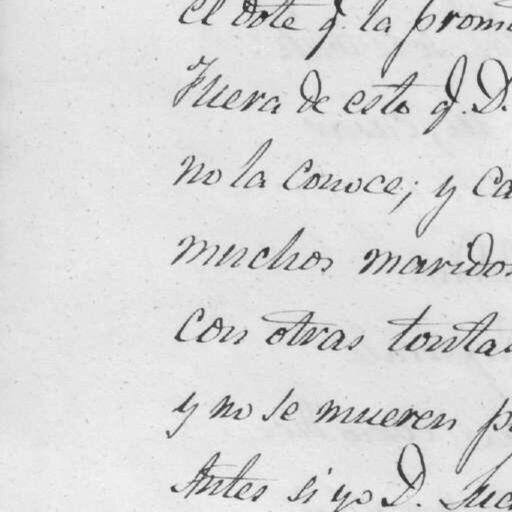 el dote q.^ la prom
Fuera de esto q. D.
no la conoce; y ca
muchos maridos
con otras tonta
y no se mueren p
Antes si yo D. Luc